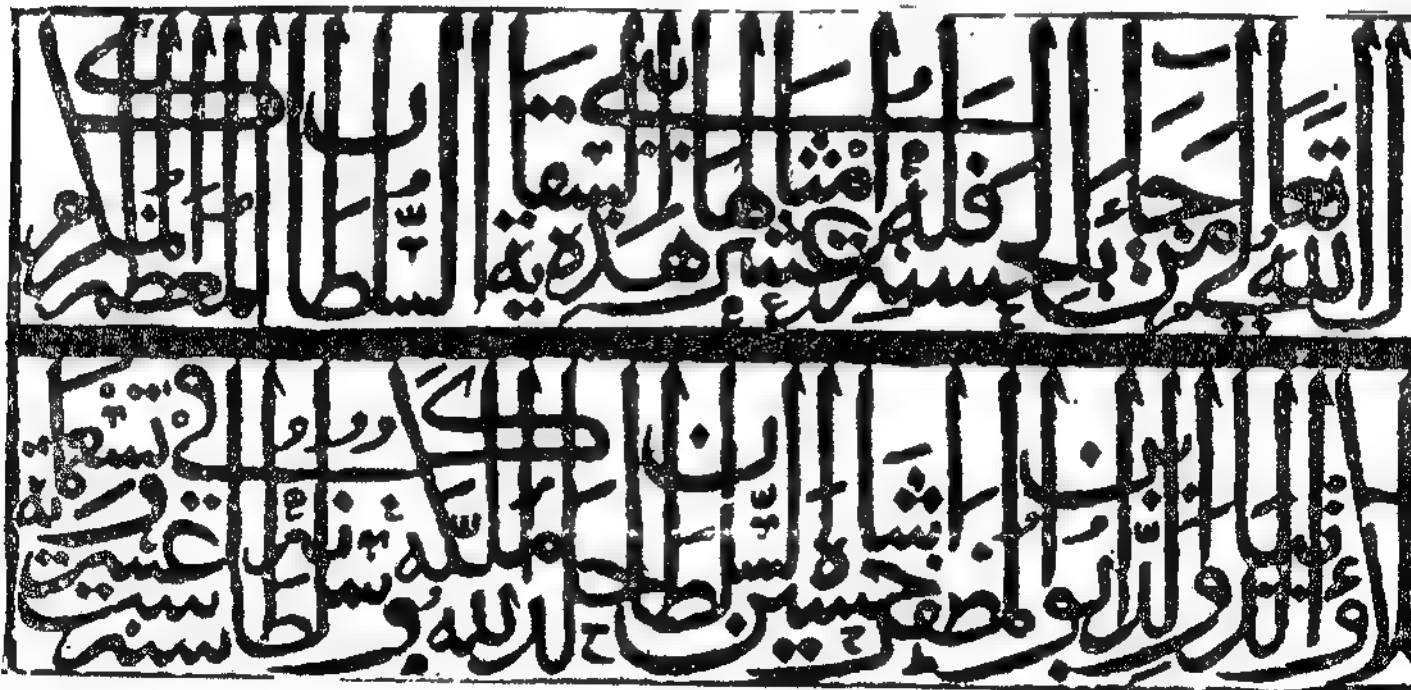 قال الله تعالى من جاء بالحسنة فله عشر امثالها بنى هذه السقاية السلطان المعظم المكرم
علاء الدنيا والدين ابو المظفر حسين شاه السلطان خلد الله ملكه وسلطانه في سنة ست عشر وتسعمائة